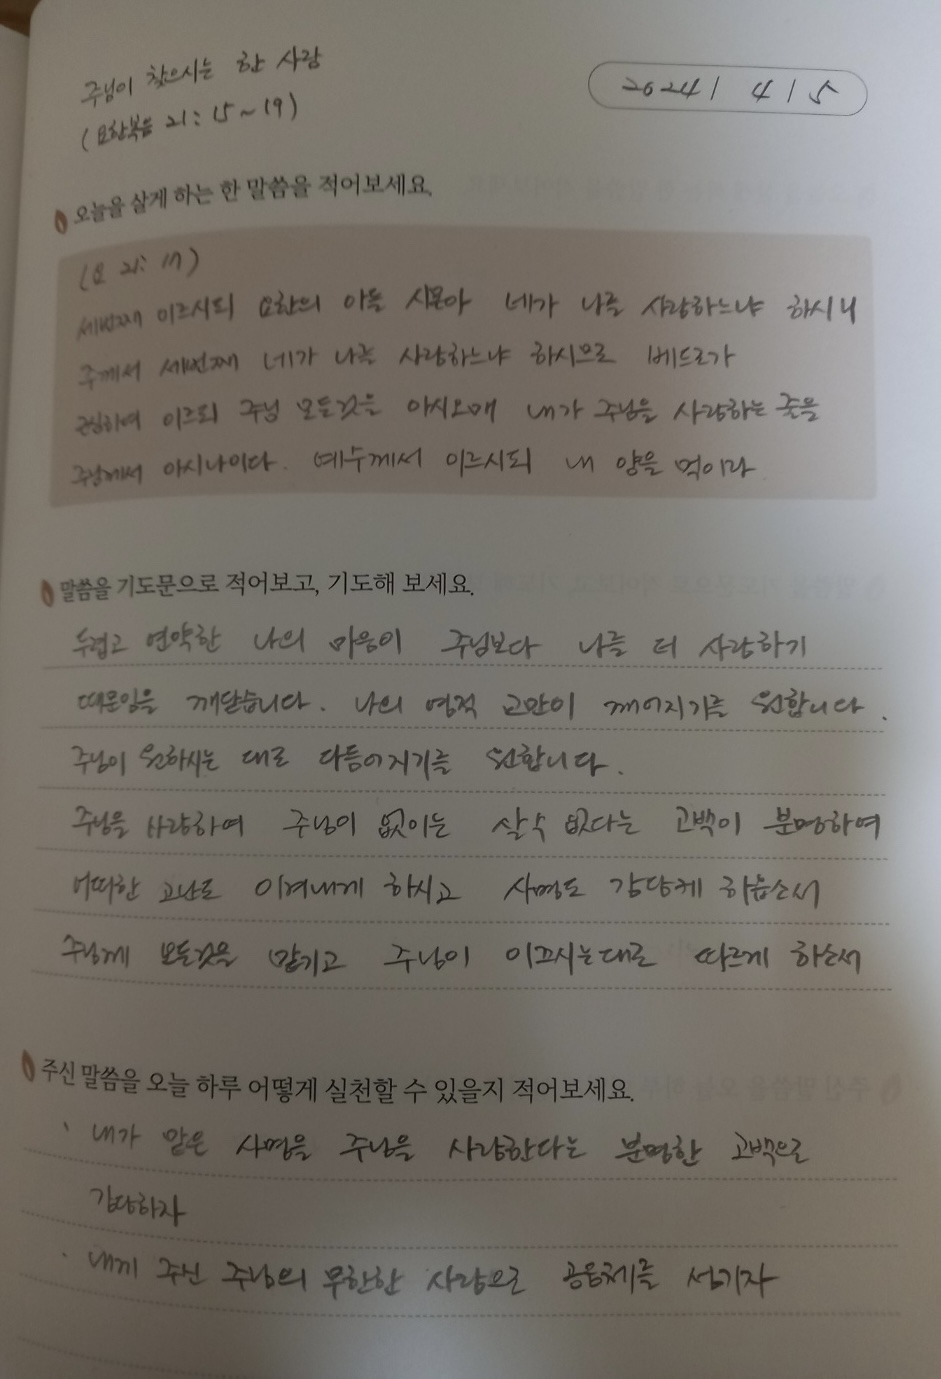 주님이 찾으시는 한 사람
(요한복음 21: 15~19)
2024 / 4 / 5
오늘을 살게 하는 한 말씀을 적어보세요.
(요 21: 17)
세번째 이르시되 요한의 아들 시몬아 네가 나를 사랑하느냐 하시니
주께서 세번째 네가 나를 사랑하느냐 하시므로 베드로가
근심하여 이르되 주님 모든것을 아시오매 내가 주님을 사랑하는 줄을
주님께서 아시나이다. 예수께서 이르시되 내 양을 먹이라
말씀을 기도문으로 적어보고, 기도해 보세요.
두렵고 연약한 나의 마음이 주님보다 나를 더 사랑하기
때문임을 깨닫습니다. 나의 영적 교만이 깨어지기를 원합니다.
주님이 원하시는 대로 다듬어지기를 원합니다.
주님을 사랑하여 주님이 없이는 살수 없다는 고백이 분명하여
어떠한 고난도 이겨내게 하시고 사명도 감당케 하옵소서
주님께 모든것을 맡기고 주님이 이끄시는대로 따르게 하소서
주신 말씀을 오늘 하루 어떻게 실천할 수 있을지 적어보세요.
· 내가 맡은 사명을 주님을 사랑한다는 분명한 고백으로
감당하자
· 내게 주신 주님의 무한한 사랑으로 공동체를 섬기자